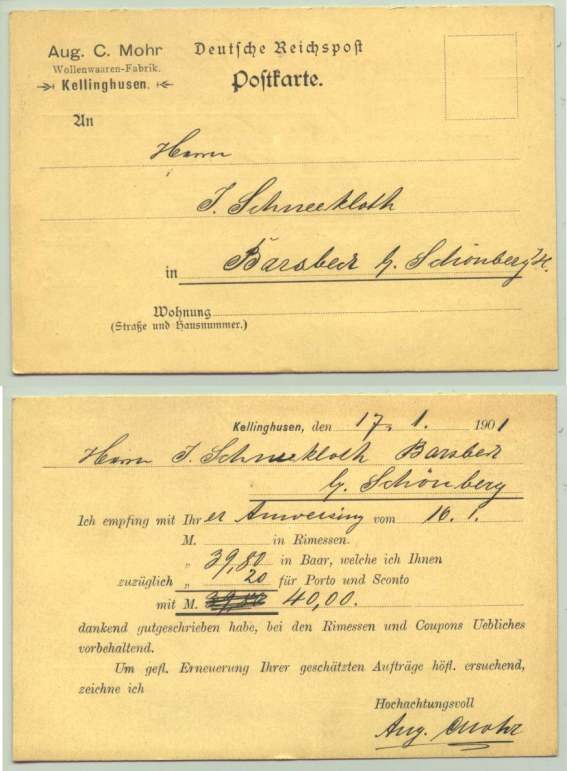 Aug. C. Mohr
Wollenwaaren-Fabrik.
Kellinghusen.
Deutsche Reichspost
Postkarte.
An
Herrn
J. Schneekloth
in Barsbeck b. Schönberg i/H.
Wohnung
(Straße und Hausnummer.)
Kellinghusen, den 17. 1. 1901
Herrn J. Schneekloth Barsbeck
b. Schönberg
Ich empfing mit Ihrer Anweisung vom 16. 1.
M. in Rimessen.
„ 39,80 in Baar, welche ich Ihnen
zuzüglich „ 20 für Porto und Sconto
mit M. 39,80 40,00.
dankend gutgeschrieben habe, bei den Rimessen und Coupons Uebliches
vorbehaltend.
Um gefl. Erneuerung Ihrer geschätzten Aufträge höfl. ersuchend,
zeichne ich
Hochachtungsvoll
Aug. C. Mohr